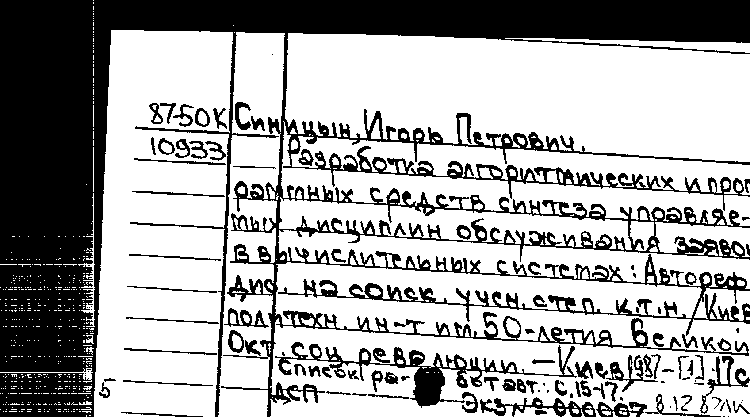 87-50К Синицын, Игорь Петрович.
10933 Разработка алгоритмических и прог
раммных средств синтеза управляе-
мых дисциплин обслуживания заявок
в вычислительных системах: Автореф
дис. на соиск. учен. степ. к.т.н. Киев
политехн. ин-т им. 50-летия Великой
Окт. соц. революции. — Киев, 1987 - [1], 17 с
Список ра- бот авт.: С. 15-17.
5 ДСП Экз № 000067 8.12.87